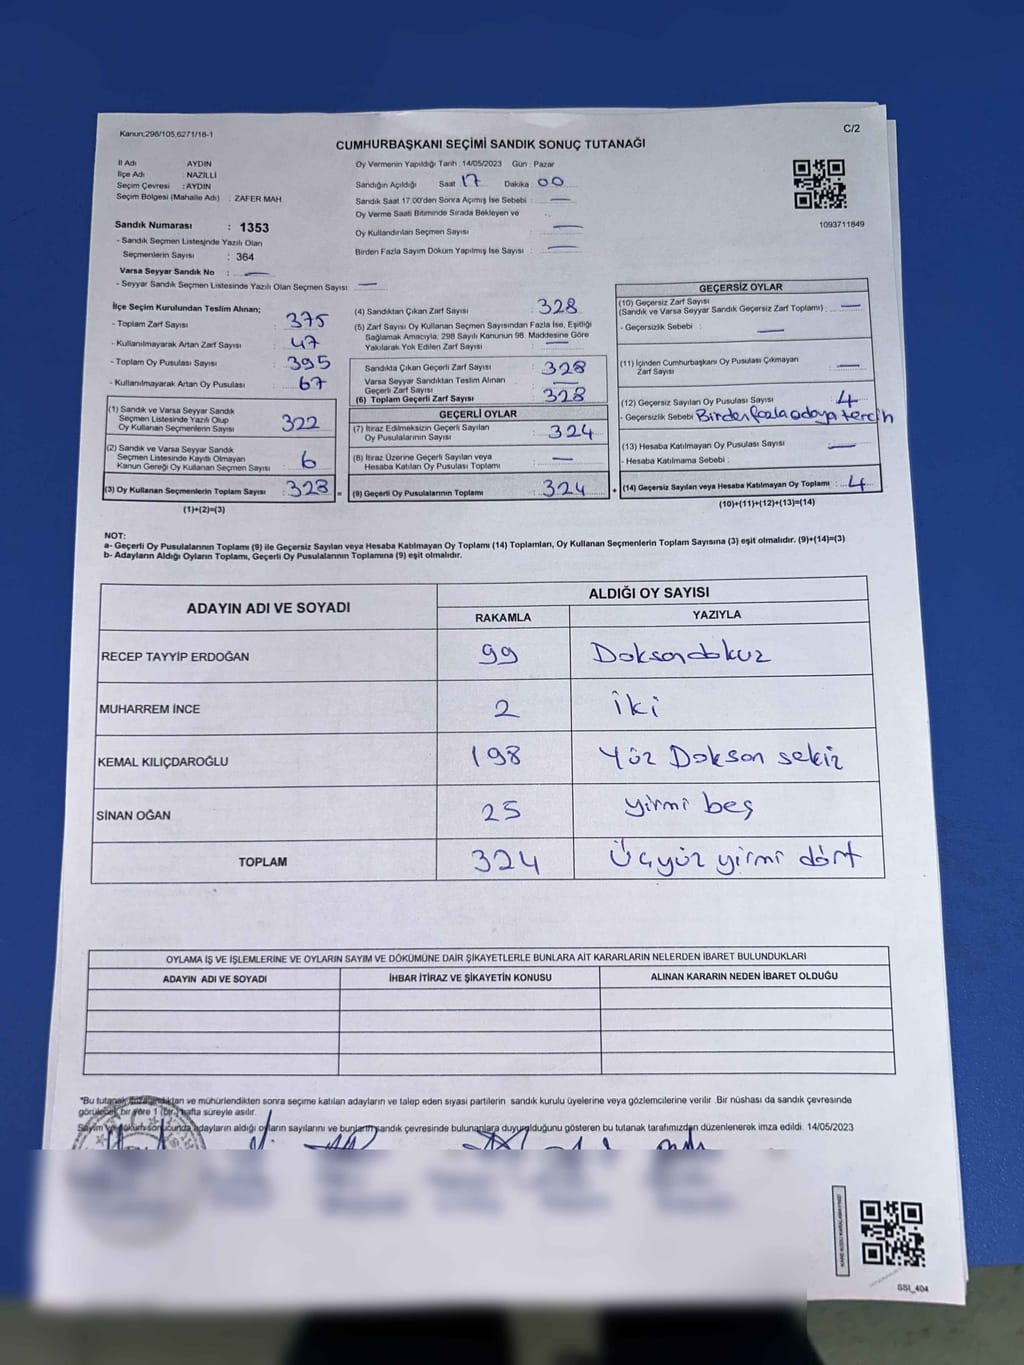 Kanun;298/105,6271/18-1
C/2
CUMHURBAŞKANI SEÇİMİ SANDIK SONUÇ TUTANAĞI
İl Adı : AYDIN
İlçe Adı : NAZİLLİ
Seçim Çevresi : AYDIN
Seçim Bölgesi (Mahalle Adı) : ZAFER MAH
Sandık Numarası : 1353
- Sandık Seçmen Listesinde Yazılı Olan
Seçmenlerin Sayısı : 364
Varsa Seyyar Sandık No : —
- Seyyar Sandık Seçmen Listesinde Yazılı Olan Seçmen Sayısı: —
Oy Vermenin Yapıldığı Tarih : 14/05/2023 Gün : Pazar
Sandığın Açıldığı Saat 17 Dakika 00
Sandık Saat 17.00'den Sonra Açımış İse Sebebi : —
Oy Verme Saati Bitiminde Sırada Bekleyen ve
Oy Kullandırılan Seçmen Sayısı —
Birden Fazla Sayım Döküm Yapılmış İse Sayısı : —
1093711849
İlçe Seçim Kurulundan Teslim Alınan;
- Toplam Zarf Sayısı : 375
- Kullanılmayarak Artan Zarf Sayısı : 47
- Toplam Oy Pusulası Sayısı : 395
- Kullanılmayarak Artan Oy Pusulası : 67
(1) Sandık ve Varsa Seyyar Sandık
Seçmen Listesinde Yazılı Olup
Oy Kullanan Seçmenlerin Sayısı : 322
(2) Sandık ve Varsa Seyyar Sandık
Seçmen Listesinde Kayıtlı Olmayan
Kanun Gereği Oy Kullanan Seçmen Sayısı : 6
(3) Oy Kullanan Seçmenlerin Toplam Sayısı : 328
(1)+(2)=(3)
(4) Sandıktan Çıkan Zarf Sayısı : 328
(5) Zarf Sayısı Oy Kullanan Seçmen Sayısından Fazla İse, Eşitliği
Sağlamak Amacıyla, 298 Sayılı Kanunun 98. Maddesine Göre
Yakılarak Yok Edilen Zarf Sayısı : —
Sandıkta Çıkan Geçerli Zarf Sayısı : 328
Varsa Seyyar Sandıktan Teslim Alınan
Geçerli Zarf Sayısı : —
(6) Toplam Geçerli Zarf Sayısı : 328
GEÇERLİ OYLAR
(7) İtiraz Edilmeksizin Geçerli Sayılan
Oy Pusulalarının Sayısı : 324
(8) İtiraz Üzerine Geçerli Sayılan veya
Hesaba Katılan Oy Pusulası Toplamı : —
= (9) Geçerli Oy Pusulalarının Toplamı : 324 +
GEÇERSİZ OYLAR
(10) Geçersiz Zarf Sayısı
(Sandık ve Varsa Seyyar Sandık Geçersiz Zarf Toplamı) : —
- Geçersizlik Sebebi : —
(11) İçinden Cumhurbaşkanı Oy Pusulası Çıkmayan
Zarf Sayısı : —
(12) Geçersiz Sayılan Oy Pusulası Sayısı : 4
- Geçersizlik Sebebi : Birden fazla adaya tercih
(13) Hesaba Katılmayan Oy Pusulası Sayısı : —
- Hesaba Katılmama Sebebi :
(14) Geçersiz Sayılan veya Hesaba Katılmayan Oy Toplamı : 4
(10)+(11)+(12)+(13)=(14)
NOT:
a- Geçerli Oy Pusulalarının Toplamı (9) ile Geçersiz Sayılan veya Hesaba Katılmayan Oy Toplamı (14) Toplamları, Oy Kullanan Seçmenlerin Toplam Sayısına (3) eşit olmalıdır. (9)+(14)=(3)
b- Adayların Aldığı Oyların Toplamı, Geçerli Oy Pusulalarının Toplamına (9) eşit olmalıdır.
ADAYIN ADI VE SOYADI
ALDIĞI OY SAYISI
RAKAMLA YAZIYLA
RECEP TAYYİP ERDOĞAN 99 Doksandokuz
MUHARREM İNCE 2 iki
KEMAL KILIÇDAROĞLU 198 Yüz Doksan sekiz
SİNAN OĞAN 25 yirmi beş
TOPLAM 324 Üçyüz yirmi dört
OYLAMA İŞ VE İŞLEMLERİNE VE OYLARIN SAYIM VE DÖKÜMÜNE DAİR ŞİKAYETLERLE BUNLARA AİT KARARLARIN NELERDEN İBARET BULUNDUKLARI
ADAYIN ADI VE SOYADI İHBAR İTİRAZ VE ŞİKAYETİN KONUSU ALINAN KARARIN NEDEN İBARET OLDUĞU
*Bu tutanak imzalandıktan ve mühürlendikten sonra seçime katılan adayların ve talep eden siyasi partilerin sandık kurulu üyelerine veya gözlemcilerine verilir .Bir nüshası da sandık çevresinde
görülecek bir yere 1 (bir ) hafta süreyle asılır.
Sayım ve döküm sonucunda adayların aldığı oyların sayılarını ve bunların sandık çevresinde bulunanlara duyurulduğunu gösteren bu tutanak tarafımızdan düzenlenerek imza edildi. 14/05/2023
SSI_404